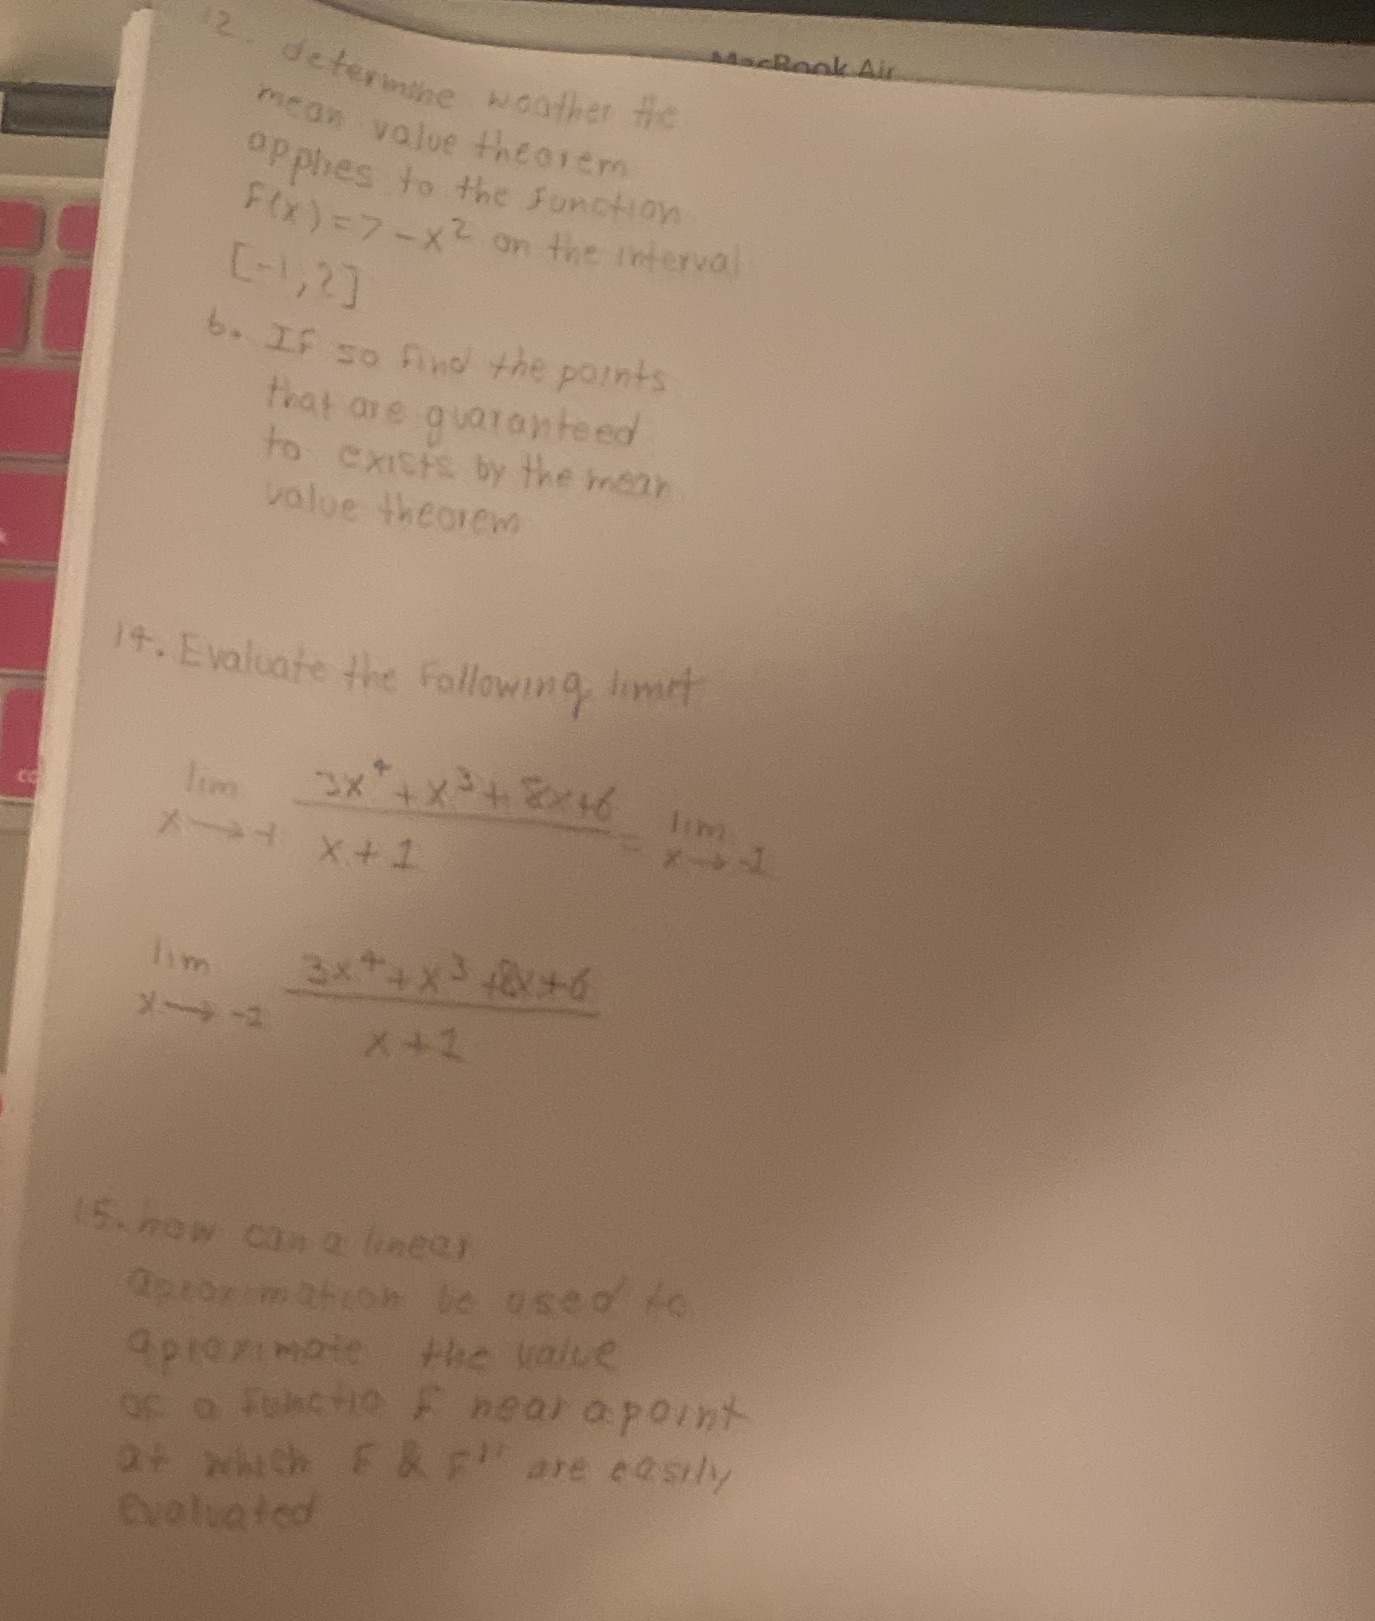 MacBook Air
12. determine weather the
mean value theorem
applies to the function
F(x) = 7 - x² on the interval
[-1, 2]
b. If so find the points
that are guaranteed
to exists by the mean
value theorem
14. Evaluate the following limit
lim x→-1 3x⁴ + x³ + 8x + 6 / x + 1 = lim x→-1
lim x→-2 3x⁴ + x³ + 8x + 6 / x + 1
15. how can a linear
aproximation be used to
aproximate the value
of a functio F near a point
at which F & F'' are easily
evaluated